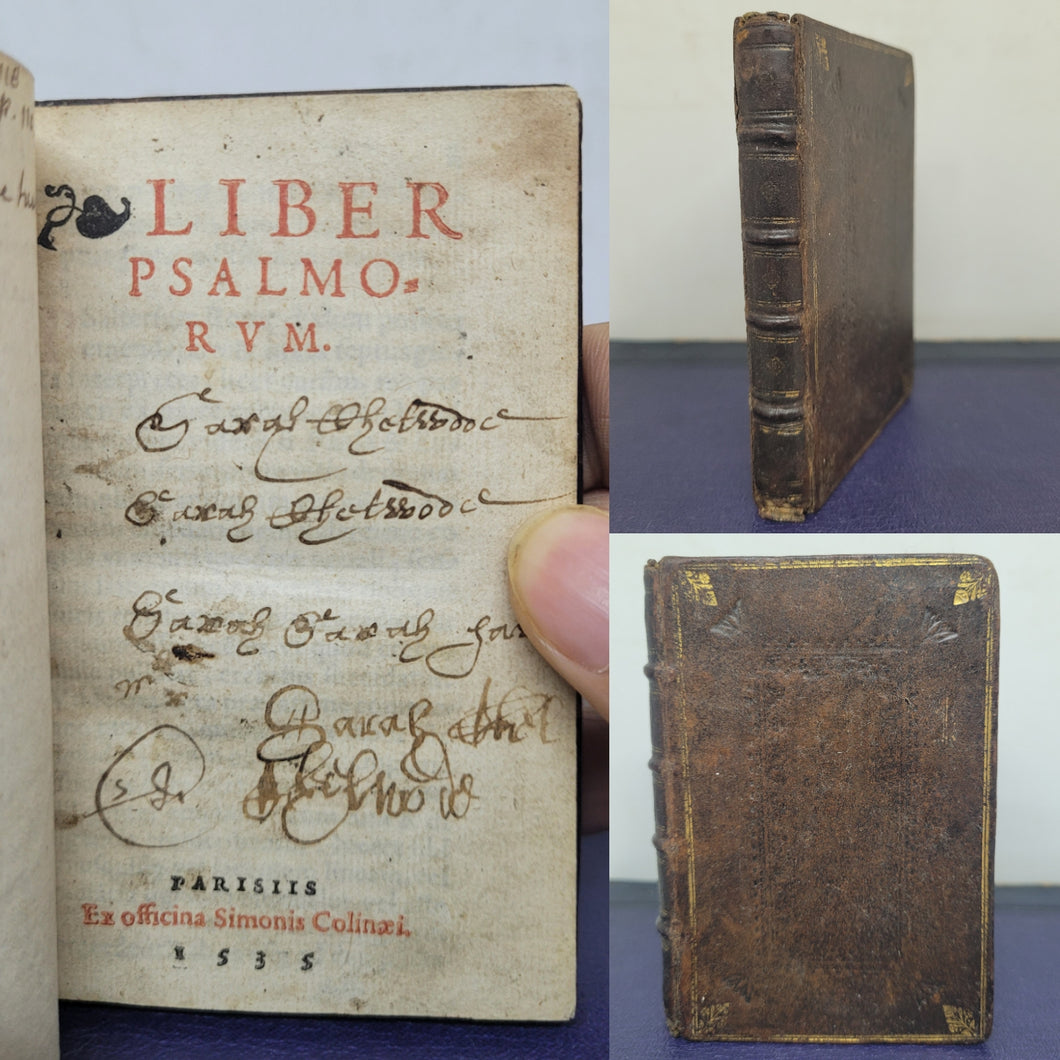 LIBER
PSALMO-
RVM.
Sarah Chetwode
Sarah Chetwode
Sarah Sarah
Sarah Chet
Chetwode
PARISIIS
Ex officina Simonis Colinæi.
1535